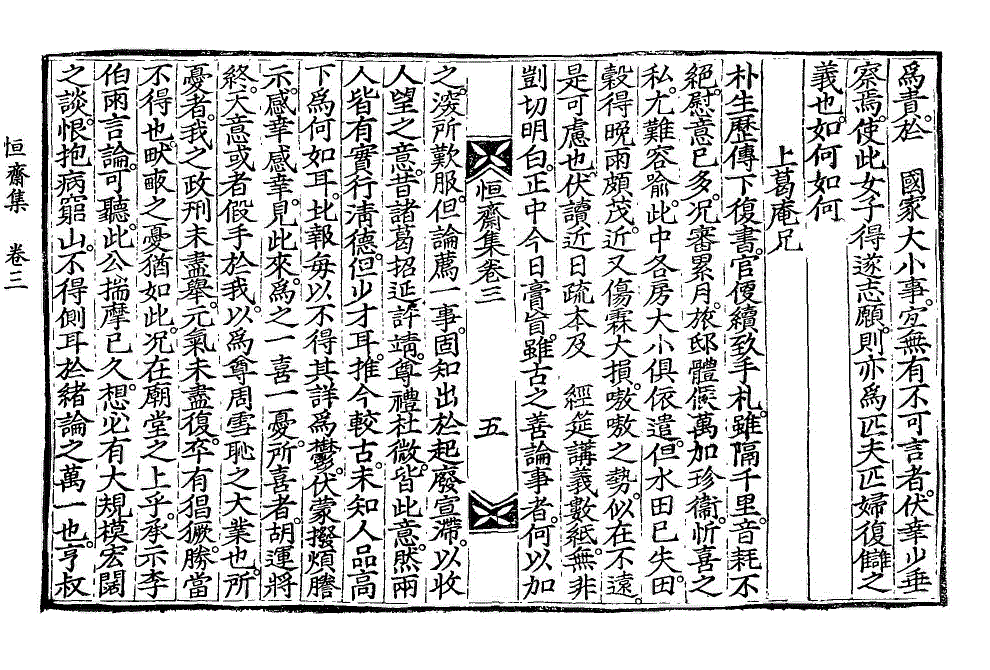 爲責於　國家大小事。宜無有不可言者。伏幸少垂
察焉。使此女子得遂志願。則亦爲匹夫匹婦復讎之
義也。如何如何
上葛庵兄
朴生歷傳下復書。官便續致手札。雖隔千里。音耗不
絕。慰意已多。况審累月。旅邸體候萬加珍衛。忻喜之
私。尤難容喩。此中各房大小俱依遣。但水田已失。田
穀得晩雨頗茂。近又傷霖大損。嗷嗷之勢。似在不遠。
是可慮也。伏讀近日疏本及　經筵講義數紙。無非
剴切明白。正中今日膏肓。雖古之善論事者。何以加
恒齋集卷三
五
之。深所歎服。但論薦一事。固知出於起廢宣滯。以收
人望之意。昔諸葛招延許靖。尊禮杜微。皆此意。然兩
人皆有實行淸德。但少才耳。推今較古。未知人品高
下爲何如耳。北報每以不得其詳爲鬱。伏蒙撥煩謄
示。感幸感幸。見此來。爲之一喜一憂。所喜者。胡運將
終。天意或者假手於我。以爲尊周雪恥之大業也。所
憂者。我之政刑未盡擧。元氣未盡復。卒有猖獗。勝當
不得也。畎畒之憂猶如此。况在廟堂之上乎。承示李
伯雨言論。可聽。此公揣摩已久。想必有大規模宏闊
之談。恨抱病窮山。不得側耳於緖論之萬一也。亨叔
恒齋集　卷三